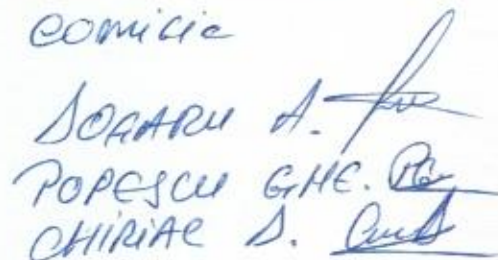 comisie
DOGARU A.
POPESCU GHE.
CHIRIAC D.